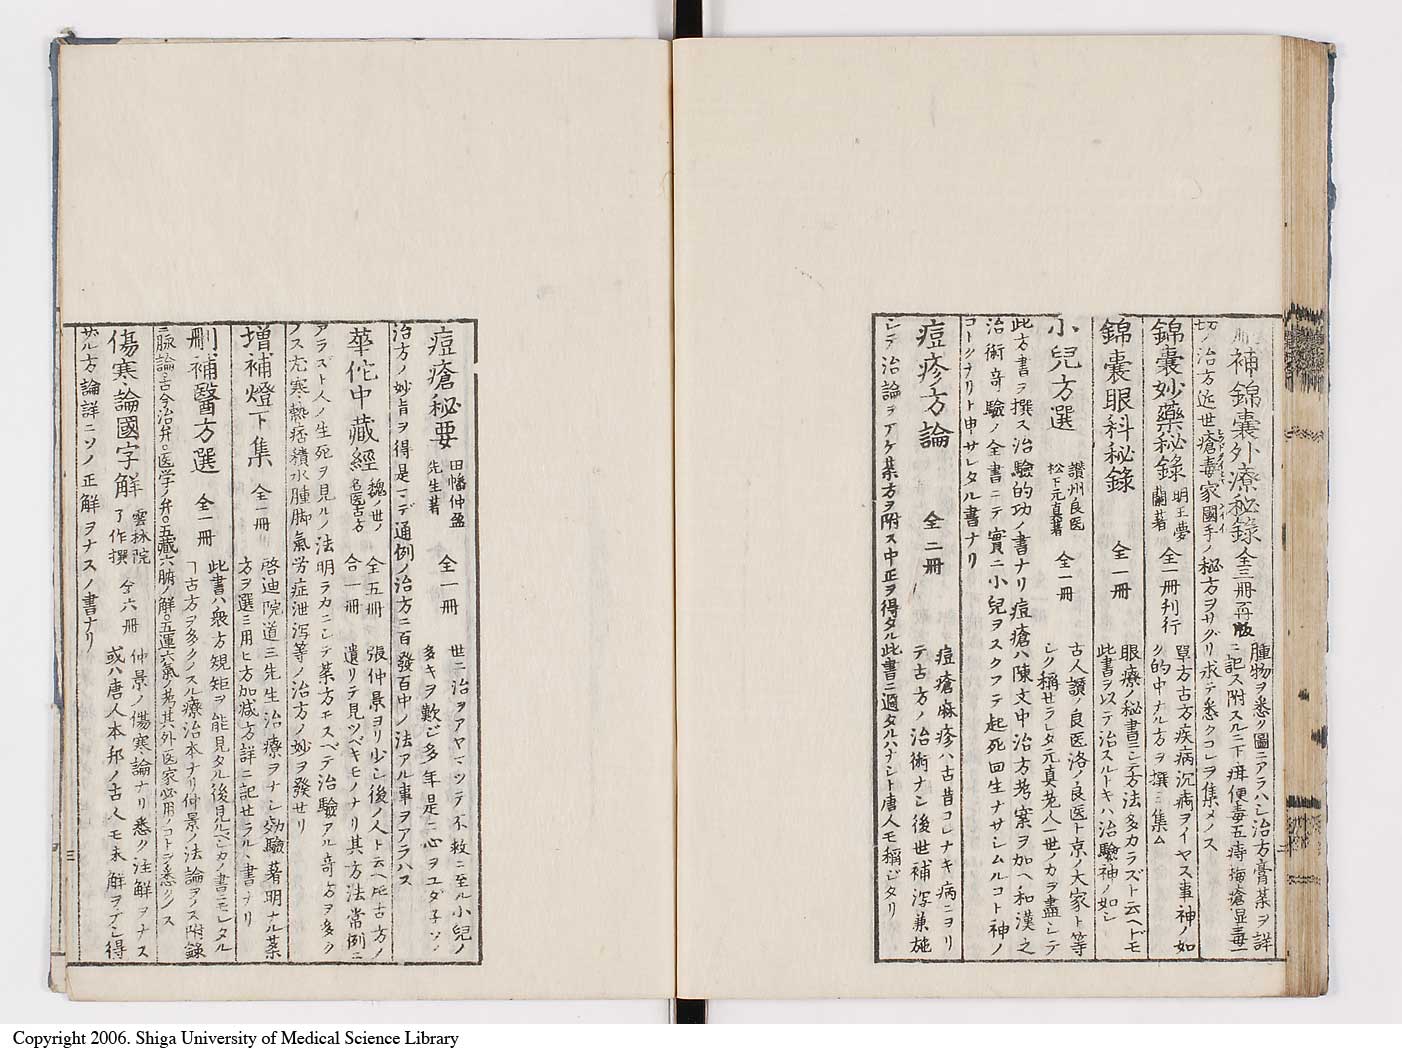 補錦囊外療秘錄 全三冊再版
腫物ヲ悉ク圖ニアラハシ治方膏薬ヲ詳
ニ記ス附スルニ下疳便毒五痔梅瘡显毒一
切ノ治方近世瘡毒家國手ノ秘方ヲサグリ求テ悉クコレヲ集メノス
錦囊妙藥秘錄 明王夢蘭著 全一冊刊行
單方古方疾病沉痾ヲイヤス事神ノ如
ク的中ナル方ヲ撰ミ集ム
錦囊眼科秘錄 全一冊
眼療ノ秘書ニシテ方法多カラズト云ヘドモ
此書ヲ以テ治スルトキハ治驗神ノ如シ
小兒方選 讃州良医松下元真著 全一冊
古人讃ノ良医洛ノ良医ト京ノ大家ト等
シク稱セラレタ元真老人一世ノカヲ盡シテ
此方書ヲ撰ス治驗的功ノ書ナリ痘瘡ハ陳文中治方考案ヲ加ヘ和漢之
治術奇驗ノ全書ニテ實ニ小兒ヲスクフテ起死回生ナサシムルコト神ノ
コトクナリト申サレタル書ナリ
痘疹方論 全二冊
痘瘡麻疹ハ古昔コレナキ病ニヨリ
テ古方ノ治術ナシ後世補瀉兼施
シテ治論ヲアケ薬方ヲ附ス中正ヲ得タル此書ニ過タルハナシト唐人モ稱シタリ
痘瘡秘要 田幡仲盈先生著 全一冊
世ニ治ヲアヤマツテ不救ニ至ル小兒ノ
多キヲ歎シ多年是ニ心ヲユダ子ソノ
治方ノ妙旨ヲ得是マデ通例ノ治方ニ百發百中ノ法アル事ヲアラハス
華佗中藏經 魏ノ世ノ名医古方 全五冊合一冊
張仲景ヨリ少シ後ノ人ト云ヘ𪜈古方ノ
遺リテ見ツベキモノナリ其方法常例ニ
アラズト人ノ生死ヲ見ルノ法明ラカニシテ薬方エスベテ治驗アル奇方ヲ多ク
ノス尤寒熱痞積水腫脚氣労症泄瀉等ノ治方ノ妙ヲ發セリ
増補燈下集 全一冊
啓迪院道三先生治療ヲナシ効驗著明ナル薬
方ヲ選ミ用ヒ方加減方詳ニ記セラルヽ書ナリ
刪補醫方選 全一冊
此書ハ衆方規矩ヲ能見タル後見ルベシカノ書ニモレタル
古方ヲ多クノスル療治本ナリ仲景ノ法論ヲノス附録
ニ脉論古今治弁○医学ノ弁○五蔵六腑ノ解○五運六氣ノ考其外医家必用ノコトヲ悉クノス
傷寒論國字解 雲林院了作撰 全六冊
仲景ノ傷寒論ナリ悉ク注解ヲナス
或ハ唐人本邦ノ古人モ未解ヲナシ得
ザル方論詳ニソノ正解ヲナスノ書ナリ
三
Copyright 2006. Shiga University of Medical Science Library